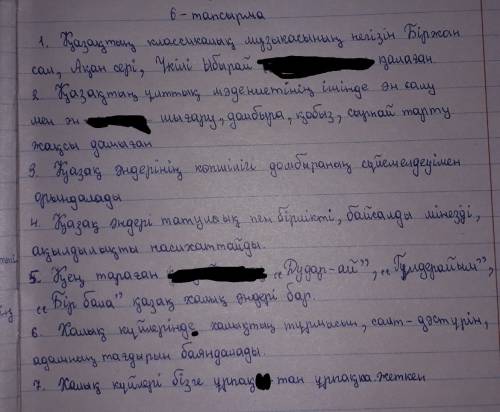 6-тапсырма
1. Қазақтың классикалық музыкасының негізін Біржан
сал, Ақан сері, Үкілі Ыбырай қалаған
2 Қазақтың ұлттық мәдениетінің ішінде ән салу
мен ән шығару, домбыра, қобыз, сырнай тарту
жақсы дамыған
3. Қазақ әндерінің көпшілігі домбыраның сүйемелдеуімен
орындалады
4. Қазақ әндері татулық пен бірлікті, байсалды мінезді,
ақылдылықты насихаттайды.
5. Кең тараған „Дудар-ай”, „Гүлдерайым”,
„Бір бала” қазақ халық әндері бар.
6. Халық күйлерінде халықтың тұрмысын, салт-дәстүрін,
адамның тағдырын баяндалады.
7. Халық күйлері бізге ұрпақ тан ұрпаққа жеткен